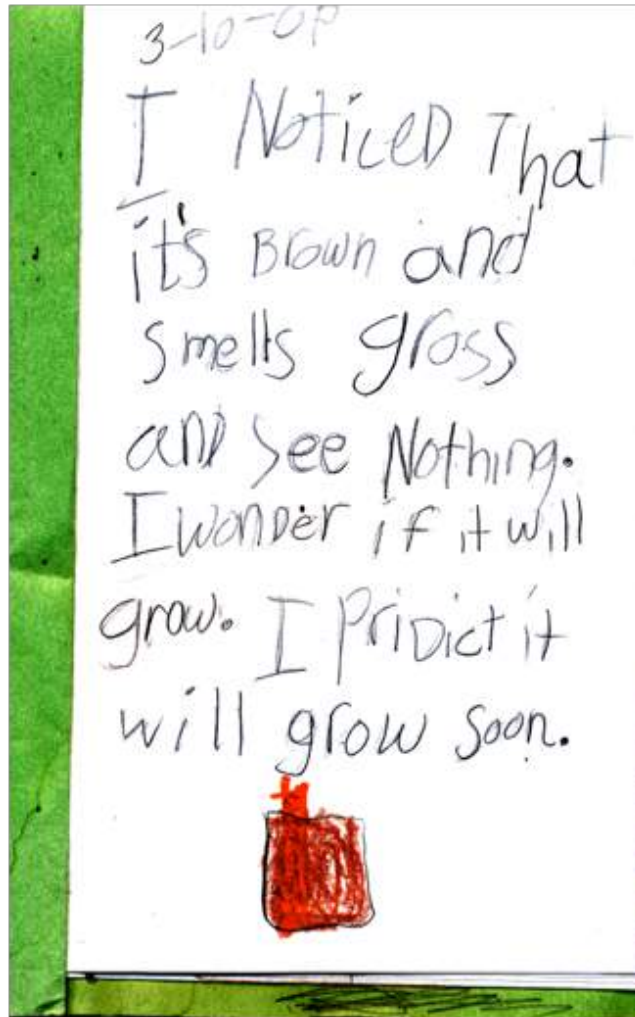 3-10-09
I Noticed That
it's Brown and
smells gross
and see Nothing.
I wonder if it will
grow. I PriDict it
will grow soon.